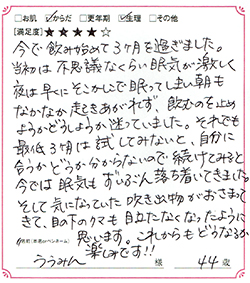 □お肌 ☑からだ □更年期 ☑生理 □その他
[満足度] ★★★★☆
今で飲み始めて3ヶ月を過ぎました。
当初は不思議なくらい眠気が激しく
夜は早くにそこかしこで眠ってしまい朝も
なかなか起きあがれず 飲むのを止め
ようかどうしようか迷っていました。それでも
最低3ヶ月は試してみないと、自分に
合うかどうか分からないので続けてみると
今では眠気もずいぶん落ち着いてきました。
そして気になっていた吹き出物がおさまっ
てきて、目の下のクマも目立たなくなったように
思います。これからもどうなるか
楽しみです!!
お名前(本名orペンネーム)
ううみん 様 44歳